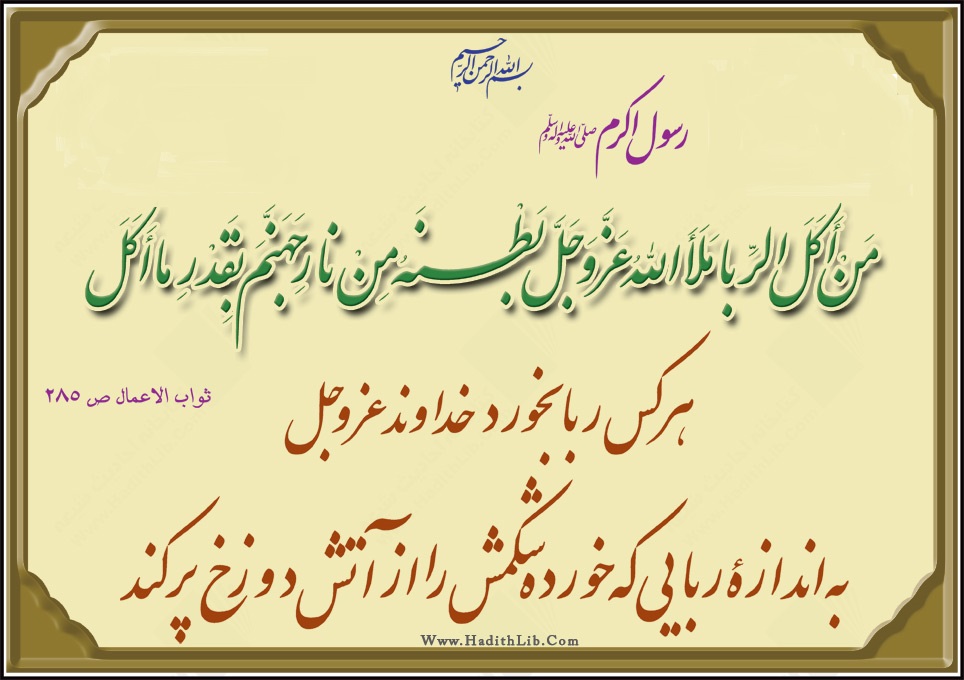 بسم الله الرحمن الرحیم
رسول اکرم صلی الله علیه و آله و سلم
مَنْ أَكَلَ الرِّبا مَلَأَ اللهُ عَزَّوَجَلَّ بَطْنَهُ مِنْ نارِ جَهَنَّمَ بِقَدْرِ ما أَكَلَ
هر کس ربا بخورد خداوند عزوجل
ثواب الاعمال ص ۲۸۵
به اندازۀ ربایی که خورده شکمش را از آتش دوزخ پر کند
Www.HadithLib.Com